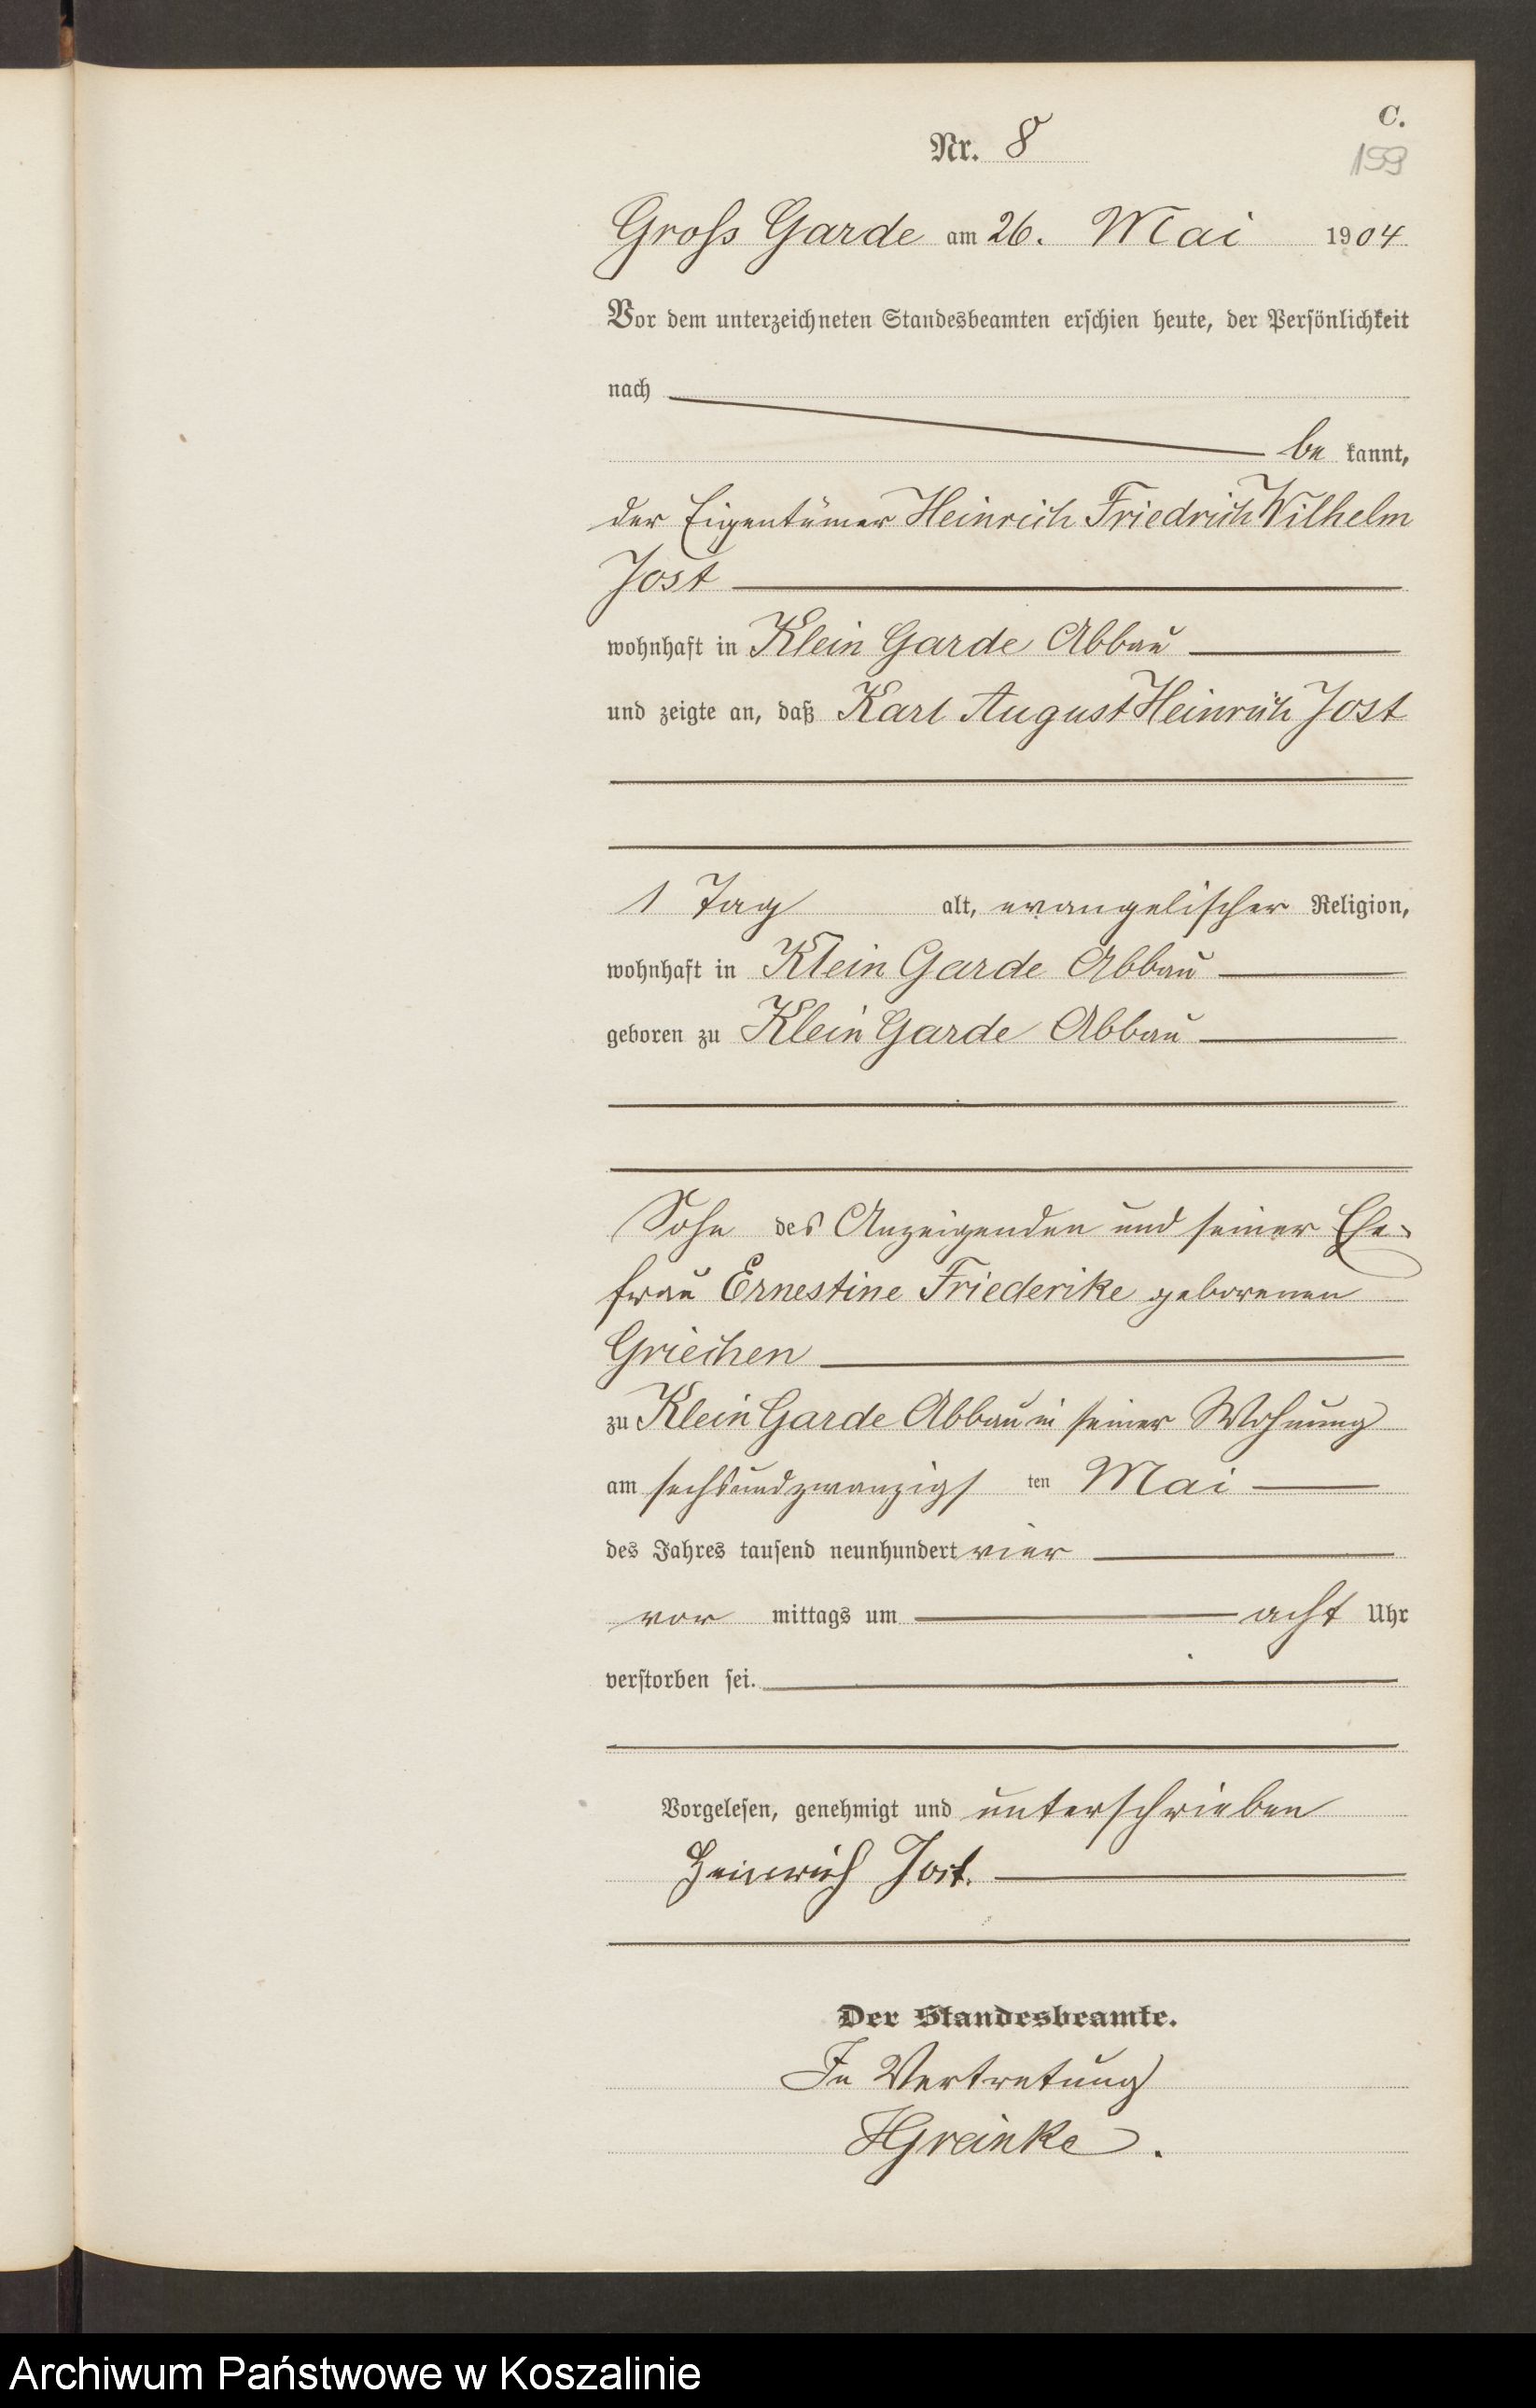 C.
Nr. 8
159
Gross Garde am 26. Mai 1904
Vor dem unterzeichneten Standesbeamten erschien heute, der Persönlichkeit
nach
be kannt,
der Eigentümer Heinrich Friedrich Wilhelm
Jost
wohnhaft in Klein Garde Abbau
und zeigte an, daß Karl August Heinrich Jost
1 Tag alt, evangelischer Religion,
wohnhaft in Klein Garde Abbau
geboren zu Klein Garde Abbau
Sohn des Anzeigenden und seiner Ehe-
frau Ernestine Friederike geborenen
Griechen
zu Klein Garde Abbau in seiner Wohnung
am sechsundzwanzigsten Mai
des Jahres tausend neunhundert vier
vor mittags um acht Uhr
verstorben sei.
Vorgelesen, genehmigt und unterschrieben
Heinrich Jost.
Der Standesbeamte.
In Vertretung
HGreinke.
Archiwum Państwowe w Koszalinie